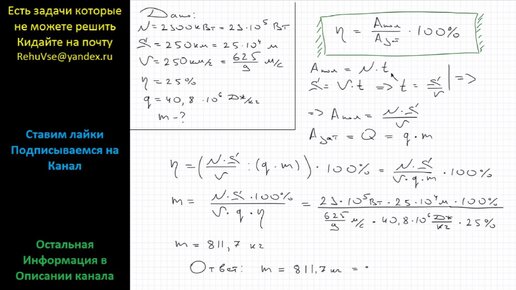 Есть задачи которые
не можете решить
Кидайте на почту
RehuVse@yandex.ru
Ставим лайки
Подписываемся на
Канал
Остальная
Информация в
Описании канала
Дано:
N = 2300 кВт = 23·10⁵ Вт
S = 250 км = 25·10⁴ м
V = 250 км/ч = 625/9 м/с
η = 25 %
q = 40,8·10⁶ Дж/кг
m - ?
η = Aпол / Aзат · 100%
Aпол = N·t
S = V·t => t = S/V | =>
=> Aпол = N·S / V
Aзат = Q = q·m
η = (N·S / V : (q·m))·100% = N·S / V·q·m · 100%
m = N·S·100% / V·q·η = 23·10⁵ Вт · 25·10⁴ м · 100% / 625/9 м/с · 40,8·10⁶ Дж/кг · 25%
m = 811,7 кг
Ответ: m = 811,7 кг =